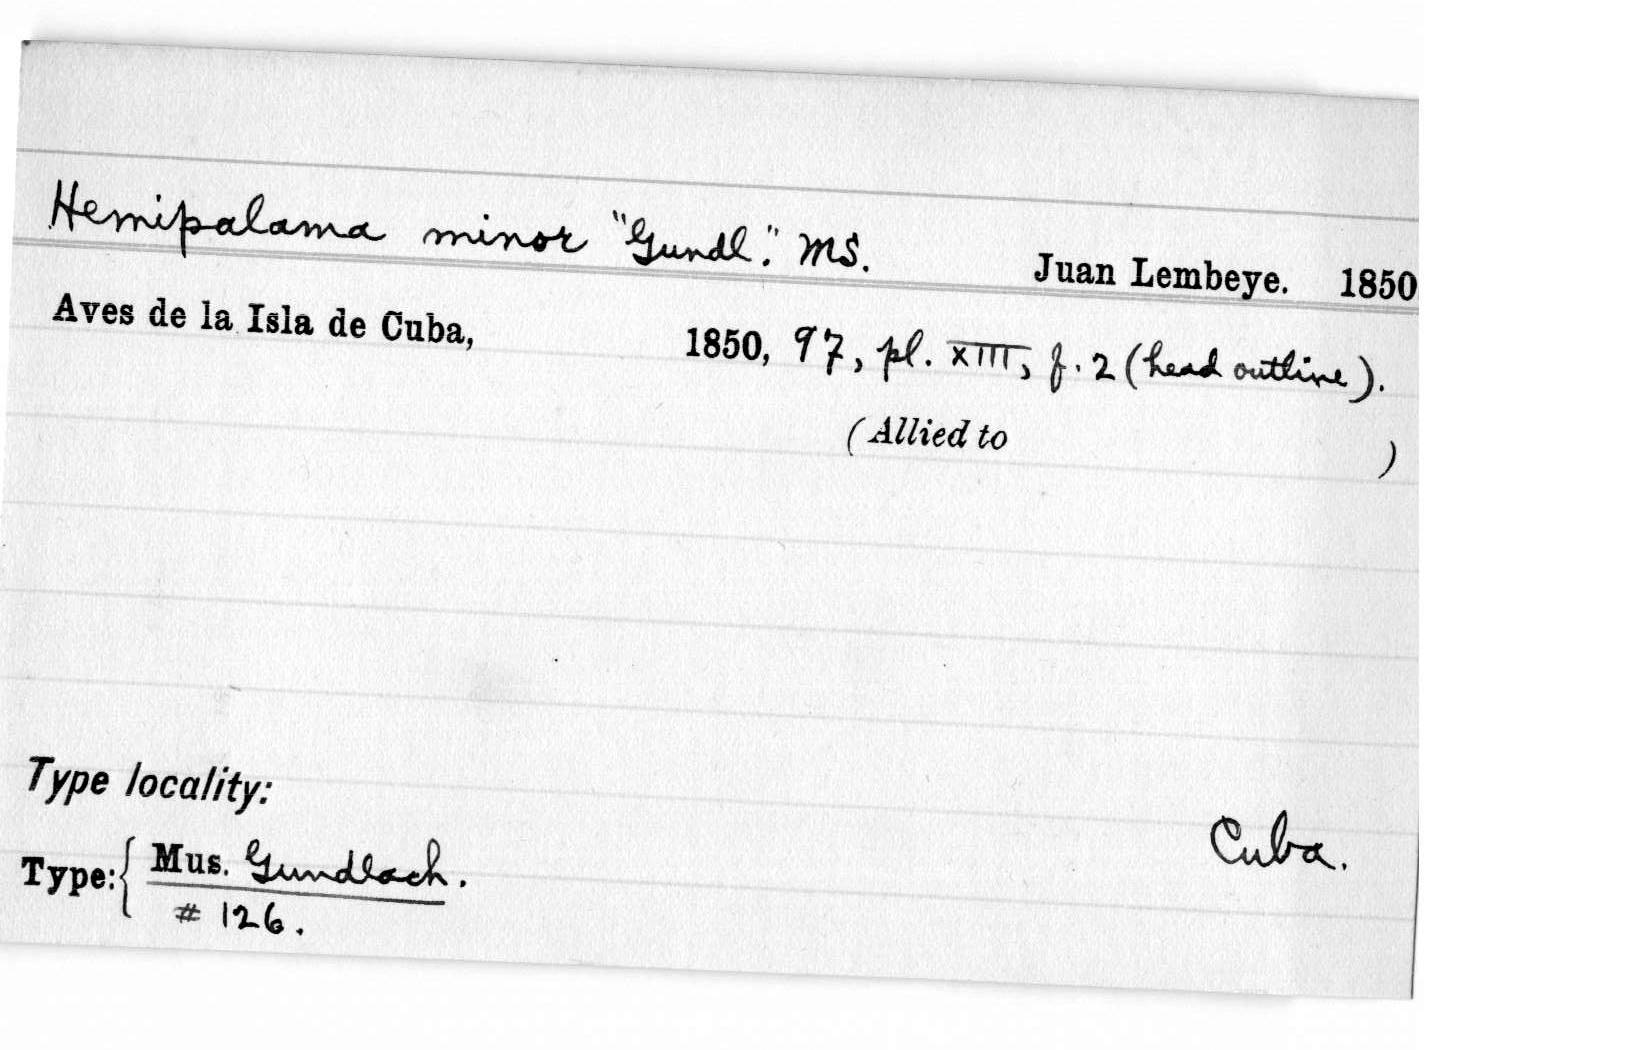 Hemipalama minor "Gundl." MS. Juan Lembeye. 1850
Aves de la Isla de Cuba, 1850, 97, pl. XIII, f. 2 (head outline).
(Allied to )
Type locality:
Cuba.
Type: { Mus. Gundlach.
# 126.